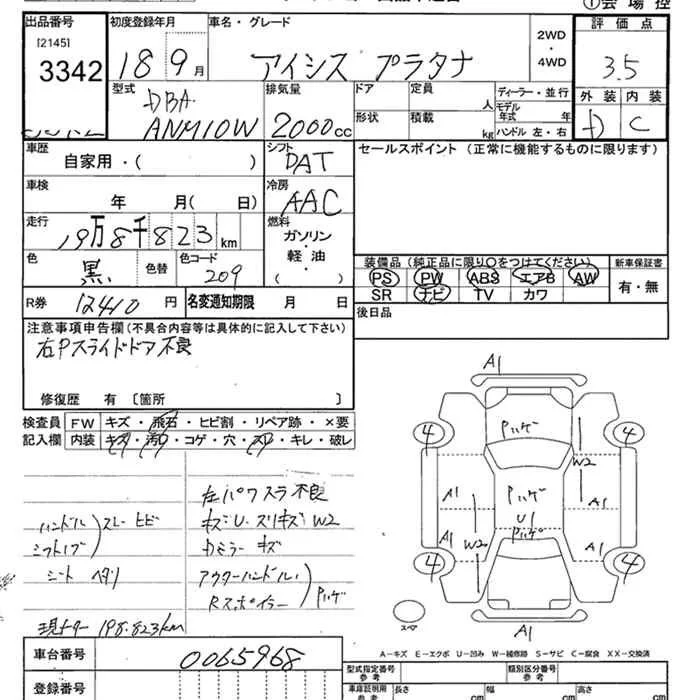 出品番号
[2145]
3342
初度登録年月
18 9月
車名・グレード
アイシス プラタナ
2WD
・
4WD
評価点
3.5
外装 内装
D C
型式
DBA
ANM10W
排気量
2000cc
ドア
定員
人
形状
積載
kg
ディーラー・並行
モデル
年式 年
ハンドル 左・右
車歴
自家用・( )
シフト
DAT
車検
年 月( 日)
冷房
AAC
走行
19万8千823km
燃料
ガソリン
・
軽油
( )
色
黒
色替
色コード
209
セールスポイント (正常に機能するものに限ります)
装備品 (純正品に限り○をつけてください)
PS PW ABS エアB AW
SR ナビ TV カワ
新車保証書
有・無
R券 12410円
名変通知期限 月 日
後日品
注意事項申告欄(不具合内容等は具体的に記入して下さい)
右Pスライドドア不良
修復歴 有 〔箇所 〕
検査員
記入欄
FW キズ・飛石・ヒビ割・リペア跡・×要
内装 キズ・汚れ・コゲ・穴・スレ・キレ・破レ
ハンドル
シフトノブ
スレ ヒビ
シート ヘタリ
左パワスラ不良
キズU・スリキズW2
Dミラー キズ
アウターハンドル
Rスポイラー
Pハゲ
現メーター 198.823km
A1
Pハゲ
4
4
W2
A1
Pハゲ
A1
U1
Pハゲ
A1
W2
A1
4
4
スペア
A1
A-キズ E-エクボ U-凹み W-補修跡 S-サビ C-腐食 XX-交換済
車台番号
0065968
登録番号
型式指定番号
参考
類別区分番号
参考
車庫証明用
参考
長さ
cm
幅
cm
高さ
cm